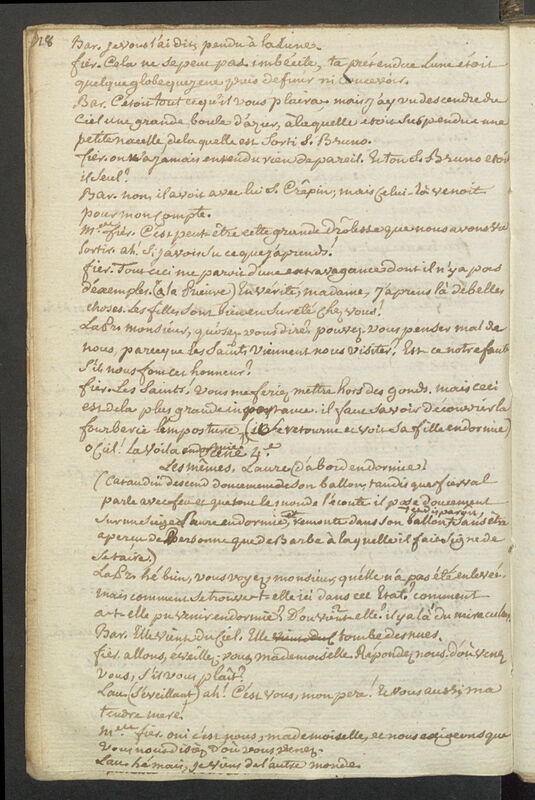 128
Bar. je vous l'ai dit; pendu à la Lune.
fier. Cela ne se peut pas imbécile, ta prétendue Lune étoit
quelque globe que je ne puis definir ni concevoir.
Bar. C'étoit tout ce qu'il vous plaira, mais j'ay vu descendre du
Ciel une grande boule d'azur, à laquelle etoit suspendue une
petite nacelle, de laquelle est sorti S. Bruno.
fier. on n'a jamais entendu rien de pareil. Et ton S. Bruno etoit
il seul?
Bar. non, il avoit avec lui S. Crêpin; mais celui-là venoit
pour mon compte.
M.me fier. C'est peut-être cette grande drôlesse que nous avons vu
sortir. ah! si j'avois su ce que j'aprends!
fier. Tout ceci me paroit d'une extravagance dont il n'y a pas
d'exemple. (à la Prieure) En vérité, madame, j'aprens là de belles
choses. Les filles sont bien en sureté chez vous!
La Pr. monsieur, qu'osez vous dire? pouvez vous penser mal de
nous, parceque les Saints viennent nous visiter? Est-ce notre faute
s'ils nous font cet honneur?
fier. Les Saints! vous me feriez mettre hors des gonds. mais ceci
est de la plus grande importance. il faut savoir découvrir la
fourberie l'imposture. (il se retourne et voit sa fille endormie)
o Ciel! La voila endormie
Scène 4.e
Les mêmes, Laure (d'abord endormie)
(Cataudin descend doucement de son ballon, tandis que fierval
parle avec feu et que tout le monde l'écoute il pose doucement
sur un siege Laure endormie, et remonte dans son ballon et disparoit, sans être
aperçu de Personne que de Barbe à laquelle il fait signe de
se taire.)
La Pr. hé bien, vous voyez, monsieur, qu'elle n'a pas été enlevée.
mais comment se trouve-t-elle ici dans cet Etat? comment
a-t-elle pu venir endormie? D'ou vient-elle? il y a là du miraculeux
Bar. Elle vient du Ciel. Elle tombe des nues.
fier. allons, éveillez-vous mademoiselle. Répondez nous. D'où venez
vous, s'il vous plaît?
Lau. (s'éveillant) ah! C'est vous, mon pere! Et vous aussi ma
tendre mere.
M.me fier. oui c'est nous, mademoiselle, et nous exigeons que
vous nous disiez d'où vous venez.
Lau. hé mais, je viens de l'autre monde.